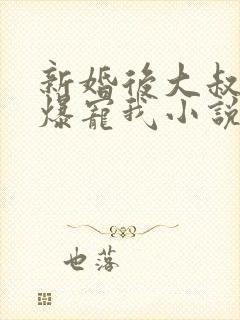 新婚後大叔
爆寵我小說
也落